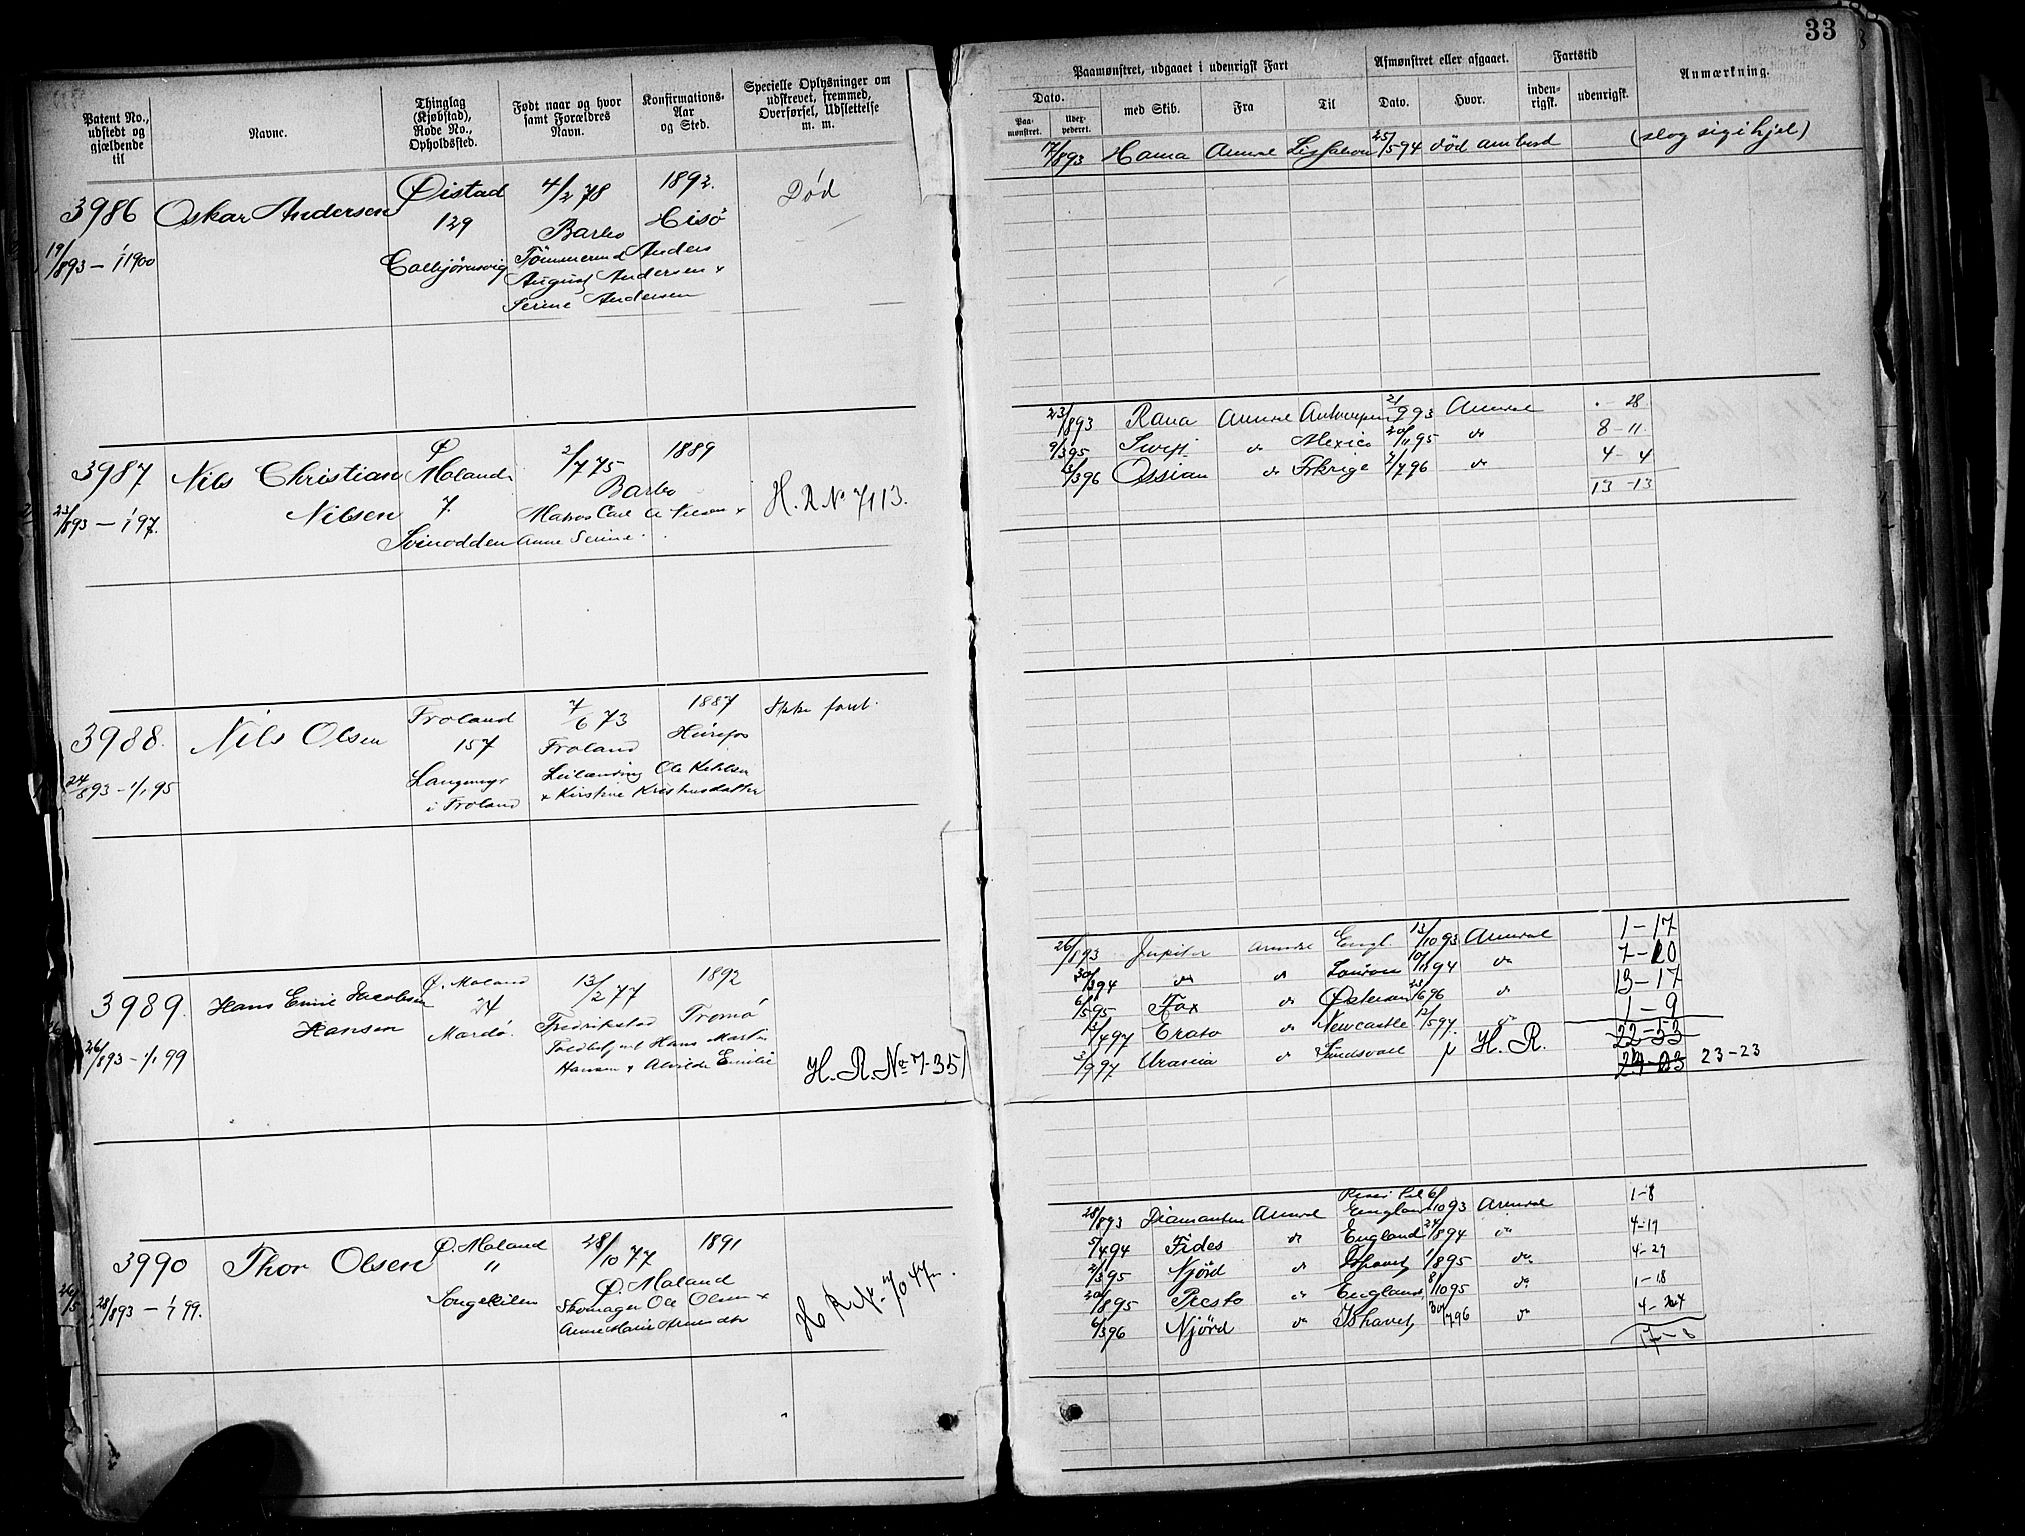 33
Patent No., udstedt og gjældende til
Navne.
Thinglag (Kjøbstad), Rode No., Opholdssted.
Født naar og hvor samt Forældres Navn.
Konfirmations-Aar og Sted.
Specielle Oplysninger om udskrevet, fremmed, Overførsel, Udslettelse m. m.
Paamønstret, udgaaet i udenrigsk Fart
Afmønstret eller afgaaet.
Fartstid
Anmærkning.
Dato.
Paamønstret.
med Skib.
Fra
Til
Dato.
Hvor.
indenrigsk.
udenrigsk.
3986
Oskar Andersen
Øistad
4/2 78
1892.
Død
129
Barbo
Hisö
19/893 – 1/1 1900
Colbjørnsvig
Tömmermd Anders
August Andersen +
Serine Andersen
7/893 Hama Arendal Lissabon 25/594 død ombord (slog sig ihjel)
3987
Nils Christian
Nilsen
Ø
Moland
2/7 75
1889
7
Barbo
H. R No 7113.
23/893 – 1/1 97.
Svinodden
Matros Carl A Nilsen +
Anne Serine
23/893 Rana Arendal Antwerpen 21/993 Arendal - 28
9/395 Swift do Mexico 20/1195 do 8 - 11
13/396 Ossian do Frkrige 7/796 do 4 - 4
13 - 13
3988.
Nils Olsen
Froland
7/6 73
1887
Ikke faret.
157
Froland
24/893 – 1/1 95
Langemyr
i Froland
Leilænding Ole
+ Kirstine
3989.
Hans Emil Jacobsen
Hansen
Ø. Moland
24
Mardø.
13/2 77
1892
Fredrikstad
Tromö
26/893 – 1/1 99
Hans Martin
Hansen + Alvilde Emilie
H. R. No 7351
26/893 Jupiter Arendal Engl. 13/1093 Arendal 1 - 17
30/394 do do London 10/1194 do 7 - 20
6/595 Fox do Østersøen 23/696 do 13 - 17
12/497 Erato do Newcastle 12/597. do 1 - 9
22-53
3/997 Urania do Sundsvall H. R. 23-23
3990
Thor Olsen
Ø. Moland
28/10 77
1891
"
Ø. Moland
28/893 – 1/1 99.
Songekilen
Skomager Ole Olsen +
Anne Marie
H R No 7047
28/893 Diamanten Arendal England 6/1093 Arendal 1-8
5/494 Fides do England 24/894 do 4-19
2/395 Njörd do Ishavet 1/895 do 4-29
20/895 Presto do England 8/1095 do 1-18
6/396 Njörd do Ishavet 30/796 do 4-24
17-8